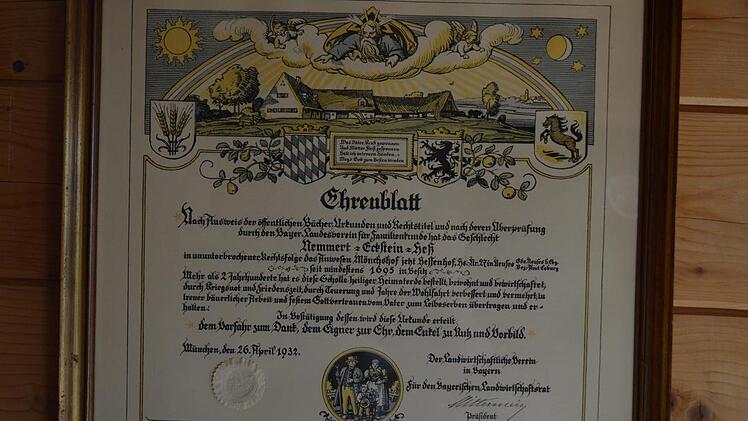 Was Väter Kraft gewonnen
Und Mütter Fleiß gesponnen
Halt ich in treuen Händen
Mags Gott zum Besten wenden
Ehrenblatt
Nach Ausweis der öffentlichen Bücher, Urkunden und Rechtstitel und nach deren Überprüfung
durch den Bayer. Landesverein für Familienkunde hat das Geschlecht
Nemmert = Eckstein = Heß
in ununterbrochener Rechtsfolge das Anwesen Mönchshof jetzt Hessenhof, Hs. Nr. 27 in Neuses
Bez. Amt Coburg
seit mindestens 1695 in Besitz
Mehr als 2 Jahrhunderte hat es diese Scholle heiliger Heimaterde bestellt, bewohnt und bewirtschaftet,
durch Kriegsnot und Friedenszeit, durch Teuerung und Jahre der Wohlfahrt verbessert und vermehrt, in
treuer bäuerlicher Arbeit und festem Gottvertrauen vom Vater zum Leibeserben übertragen und er-
halten:
In Bestätigung dessen wird diese Urkunde erteilt:
dem Vorfahr zum Dank, dem Eigner zur Ehr, dem Enkel zu Nutz und Vorbild.
München, den 26. April 1932.
Der Landwirtschaftliche Verein
in Bayern
Für den Bayerischen Landwirtschaftsrat
Präsident